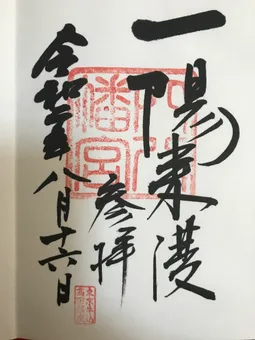 一陽来復
参拝
令和二年八月十六日
幡宮